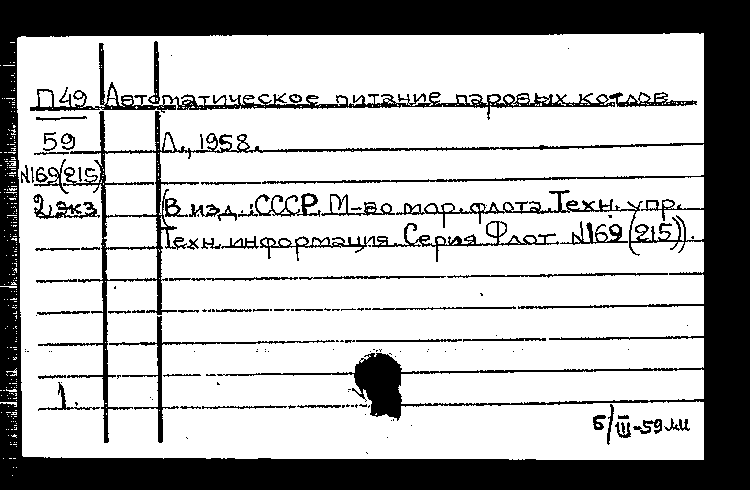 П49 Автоматическое питание паровых котлов.
59 Л., 1958.
N169(215)
2 экз (В изд.: СССР. М-во мор. флота. Техн. упр.
Техн. информация. Серия Флот N169 (215)).
1.
5/III-59